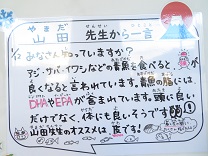 やまだ せんせい ひとこと
山田 先生から一言
みなさん知っていますか?
アジ・サバ・イワシなどの青魚を食べると
が良くなると言われています。青魚の脂には
DHAやEPAが含まれています。頭に良い
だけでなく、体にも良いそうです
山田先生のオススメは、です!